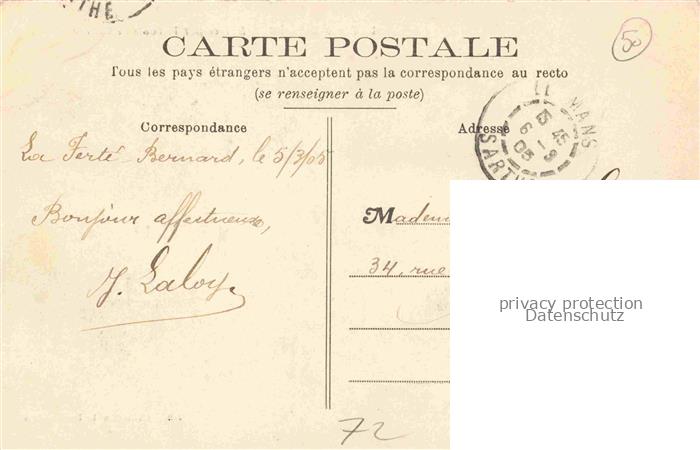 THE
50
CARTE POSTALE
Tous les pays étrangers n'acceptent pas la correspondance au recto
(se renseigner à la poste)
Correspondance
Adresse
LE MANS
15 45
6 - 9
05
SARTHE
La Ferté Bernard, le 5/3/05
Bonjour affectueux,
J. Laloy.
Madem
34, rue
privacy protection
Datenschutz
72